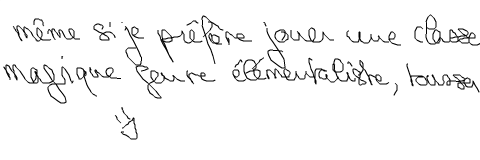 même si je préfère jouer une classe
magique genre élémentaliste, toussa
=)